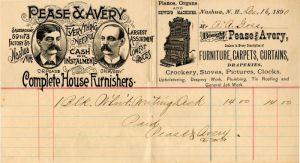 PEASE & AVERY
EVERYTHING
NEEDED
CASH
OR
INSTALMENTS
LARGEST
ASSORTMENT
LOWEST
PRICES
C.R. PEASE
O.N. AVERY
COMPLETE HOUSE FURNISHERS.
Pianos, Organs
AND
SEWING MACHINES.
Nashua, N. H., Dec. 16, 1890
M
Bought of Pease & Avery,
Dealers in Every Description of
FURNITURE, CARPETS, CURTAINS,
DRAPERIES,
Crockery, Stoves, Pictures, Clocks.
Upholstering, Drapery Work, Plumbing, Tin Roofing and
General Job Work.
1 Blk. Wal. Writing Desk 14 00 14 00
Paid
Pease & Avery